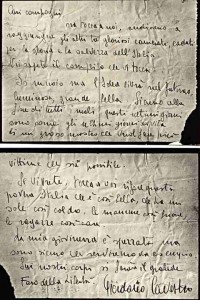 Cari compagni
ora tocca a noi, andiamo a
raggiungere gli altri tre gloriosi compagni, caduti
per la gloria e la salvezza dell'Italia
Voi sapete il compito che vi tocca.
Io muoio ma l'idea vivrà nel futuro,
luminosa, grande e bella. Siamo alla
fine di tutti i mali questi giorni
sono come gli ultimi giorni di vita
di un grosso mostro che vuol fare più
vittime che sia possibile.
Se vivrete, tocca a voi rifare questa
povera Italia che è così bella, che ha un
sole così caldo, le mamme così buone
le ragazze così care.
La mia giovinezza è spezzata ma
sono sicuro che servirà da esempio
sui nostri corpi si farà il grande
Faro della Libertà
Giordano Cavestro